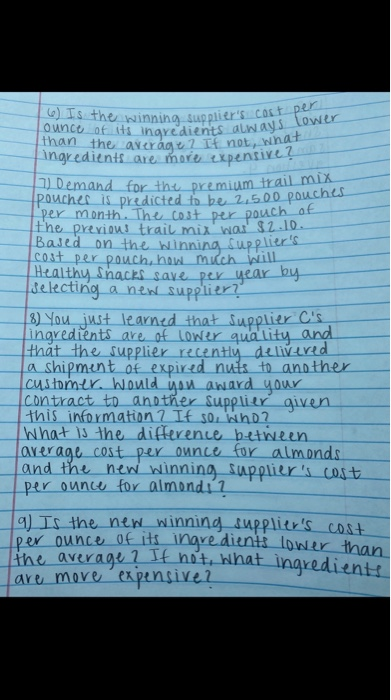 6) Is the winning supplier's cost per
ounce of its ingredients always lower
than the average? If not, what
ingredients are more expensive?
7) Demand for the premium trail mix
pouches is predicted to be 2,500 pouches
per month. The cost per pouch of
the previous trail mix was $2.10.
Based on the winning supplier's
cost per pouch, how much will
Healthy Snacks save per year by
selecting a new supplier?
8) You just learned that supplier C's
ingredients are of lower quality and
that the supplier recently delivered
a shipment of expired nuts to another
customer. Would you award your
contract to another supplier given
this information? If so, who?
What is the difference between
average cost per ounce for almonds
and the new winning supplier's cost
per ounce for almonds?
9) Is the new winning supplier's cost
per ounce of its ingredients lower than
the average? If not, what ingredients
are more expensive?